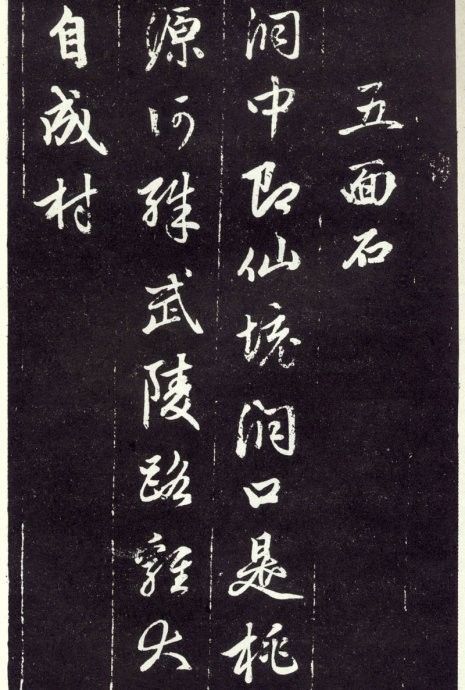 五面石
洞中即仙境洞口是桃
源何殊武陵路雞犬
自成村